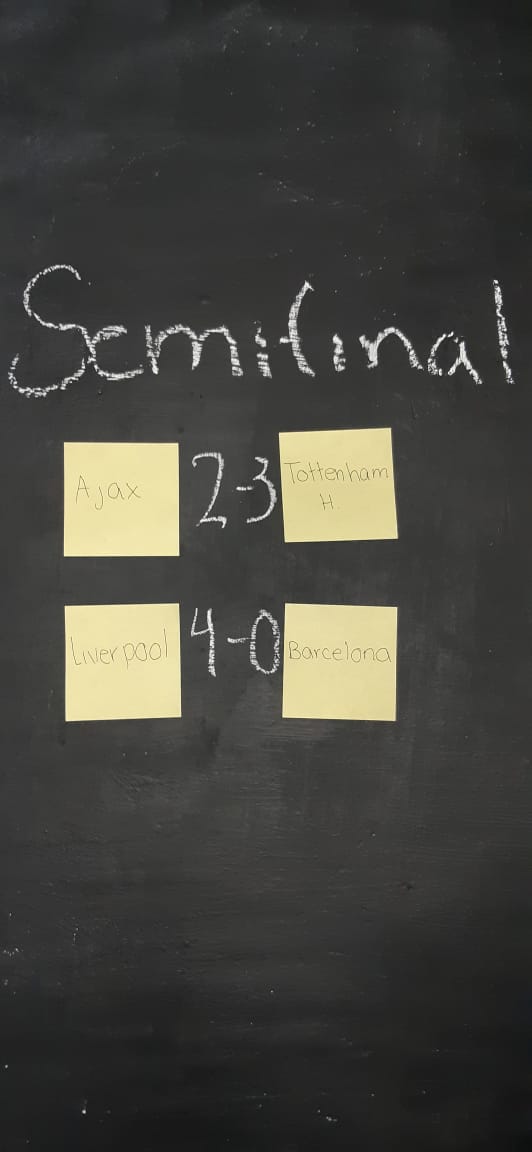 Semifinal
Ajax 2-3 Tottenham H.
Liverpool 4-0 Barcelona